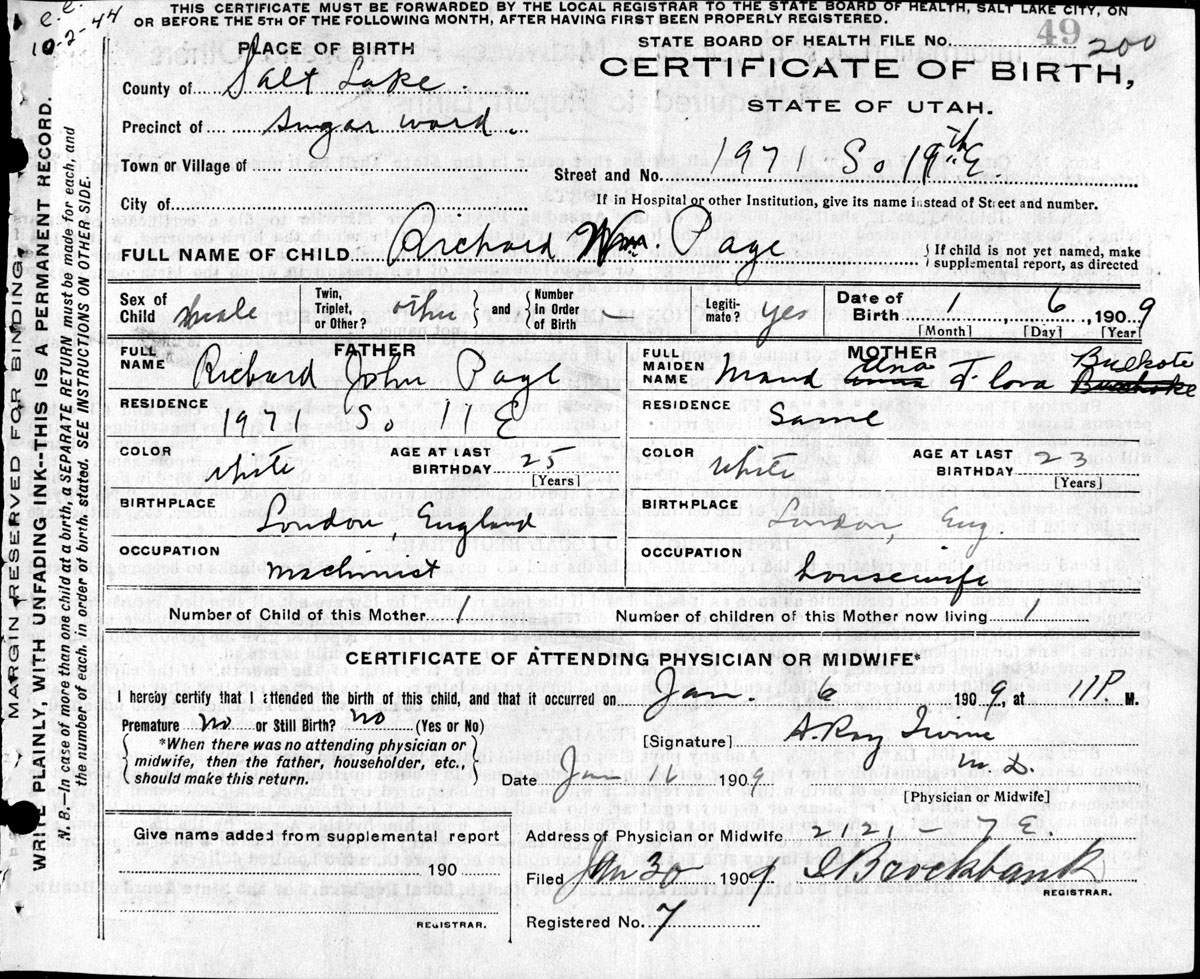 THIS CERTIFICATE MUST BE FORWARDED BY THE LOCAL REGISTRAR TO THE STATE BOARD OF HEALTH, SALT LAKE CITY, ON
OR BEFORE THE 5TH OF THE FOLLOWING MONTH, AFTER HAVING FIRST BEEN PROPERLY REGISTERED.
10-2-44
MARGIN RESERVED FOR BINDING.
WRITE PLAINLY, WITH UNFADING INK--THIS IS A PERMANENT RECORD.
N. B.—In case of more than one child at a birth, a SEPARATE RETURN must be made for each, and
the number of each, in order of birth, stated. SEE INSTRUCTIONS ON OTHER SIDE.
PLACE OF BIRTH
STATE BOARD OF HEALTH FILE No. 49 200
County of Salt Lake
CERTIFICATE OF BIRTH,
STATE OF UTAH.
Precinct of Sugar ward.
Town or Village of
Street and No. 1971 So 19th E.
City of
If in Hospital or other Institution, give its name instead of Street and number.
FULL NAME OF CHILD Richard Wm. Page
If child is not yet named, make
supplemental report, as directed
Sex of Child male
Twin, Triplet, or Other? other and Number in Order of Birth –
Legitimate? yes
Date of Birth 1 6, 1909
[Month] [Day] [Year]
FATHER
FULL NAME Richard John Page
RESIDENCE 1979 So 1 E
COLOR white
AGE AT LAST BIRTHDAY 25
[Years]
BIRTHPLACE London, England
OCCUPATION machinist
MOTHER
FULL MAIDEN NAME Maud Flora
RESIDENCE Same
COLOR white
AGE AT LAST BIRTHDAY 23
[Years]
BIRTHPLACE London, Eng.
OCCUPATION housewife
Number of Child of this Mother 1
Number of children of this Mother now living 1
CERTIFICATE OF ATTENDING PHYSICIAN OR MIDWIFE*
I hereby certify that I attended the birth of this child, and that it occurred on Jan. 6 1909, at 11P. M.
Premature no or Still Birth? no (Yes or No)
*When there was no attending physician or
midwife, then the father, householder, etc.,
should make this return.
[Signature] A. Ray Irvine
M.D.
Date Jan 16 1909
[Physician or Midwife]
Give name added from supplemental report
190
REGISTRAR.
Address of Physician or Midwife 2121 – 7 E.
Filed Jan 30 1909 Brockbank
REGISTRAR.
Registered No. 7